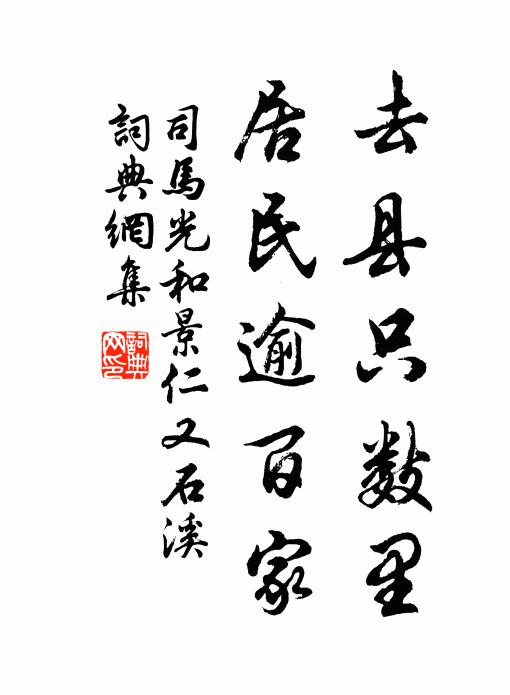 去县只数里
居民逾百家
司馬光和景仁又石溪
詞典網集
詞典
网印